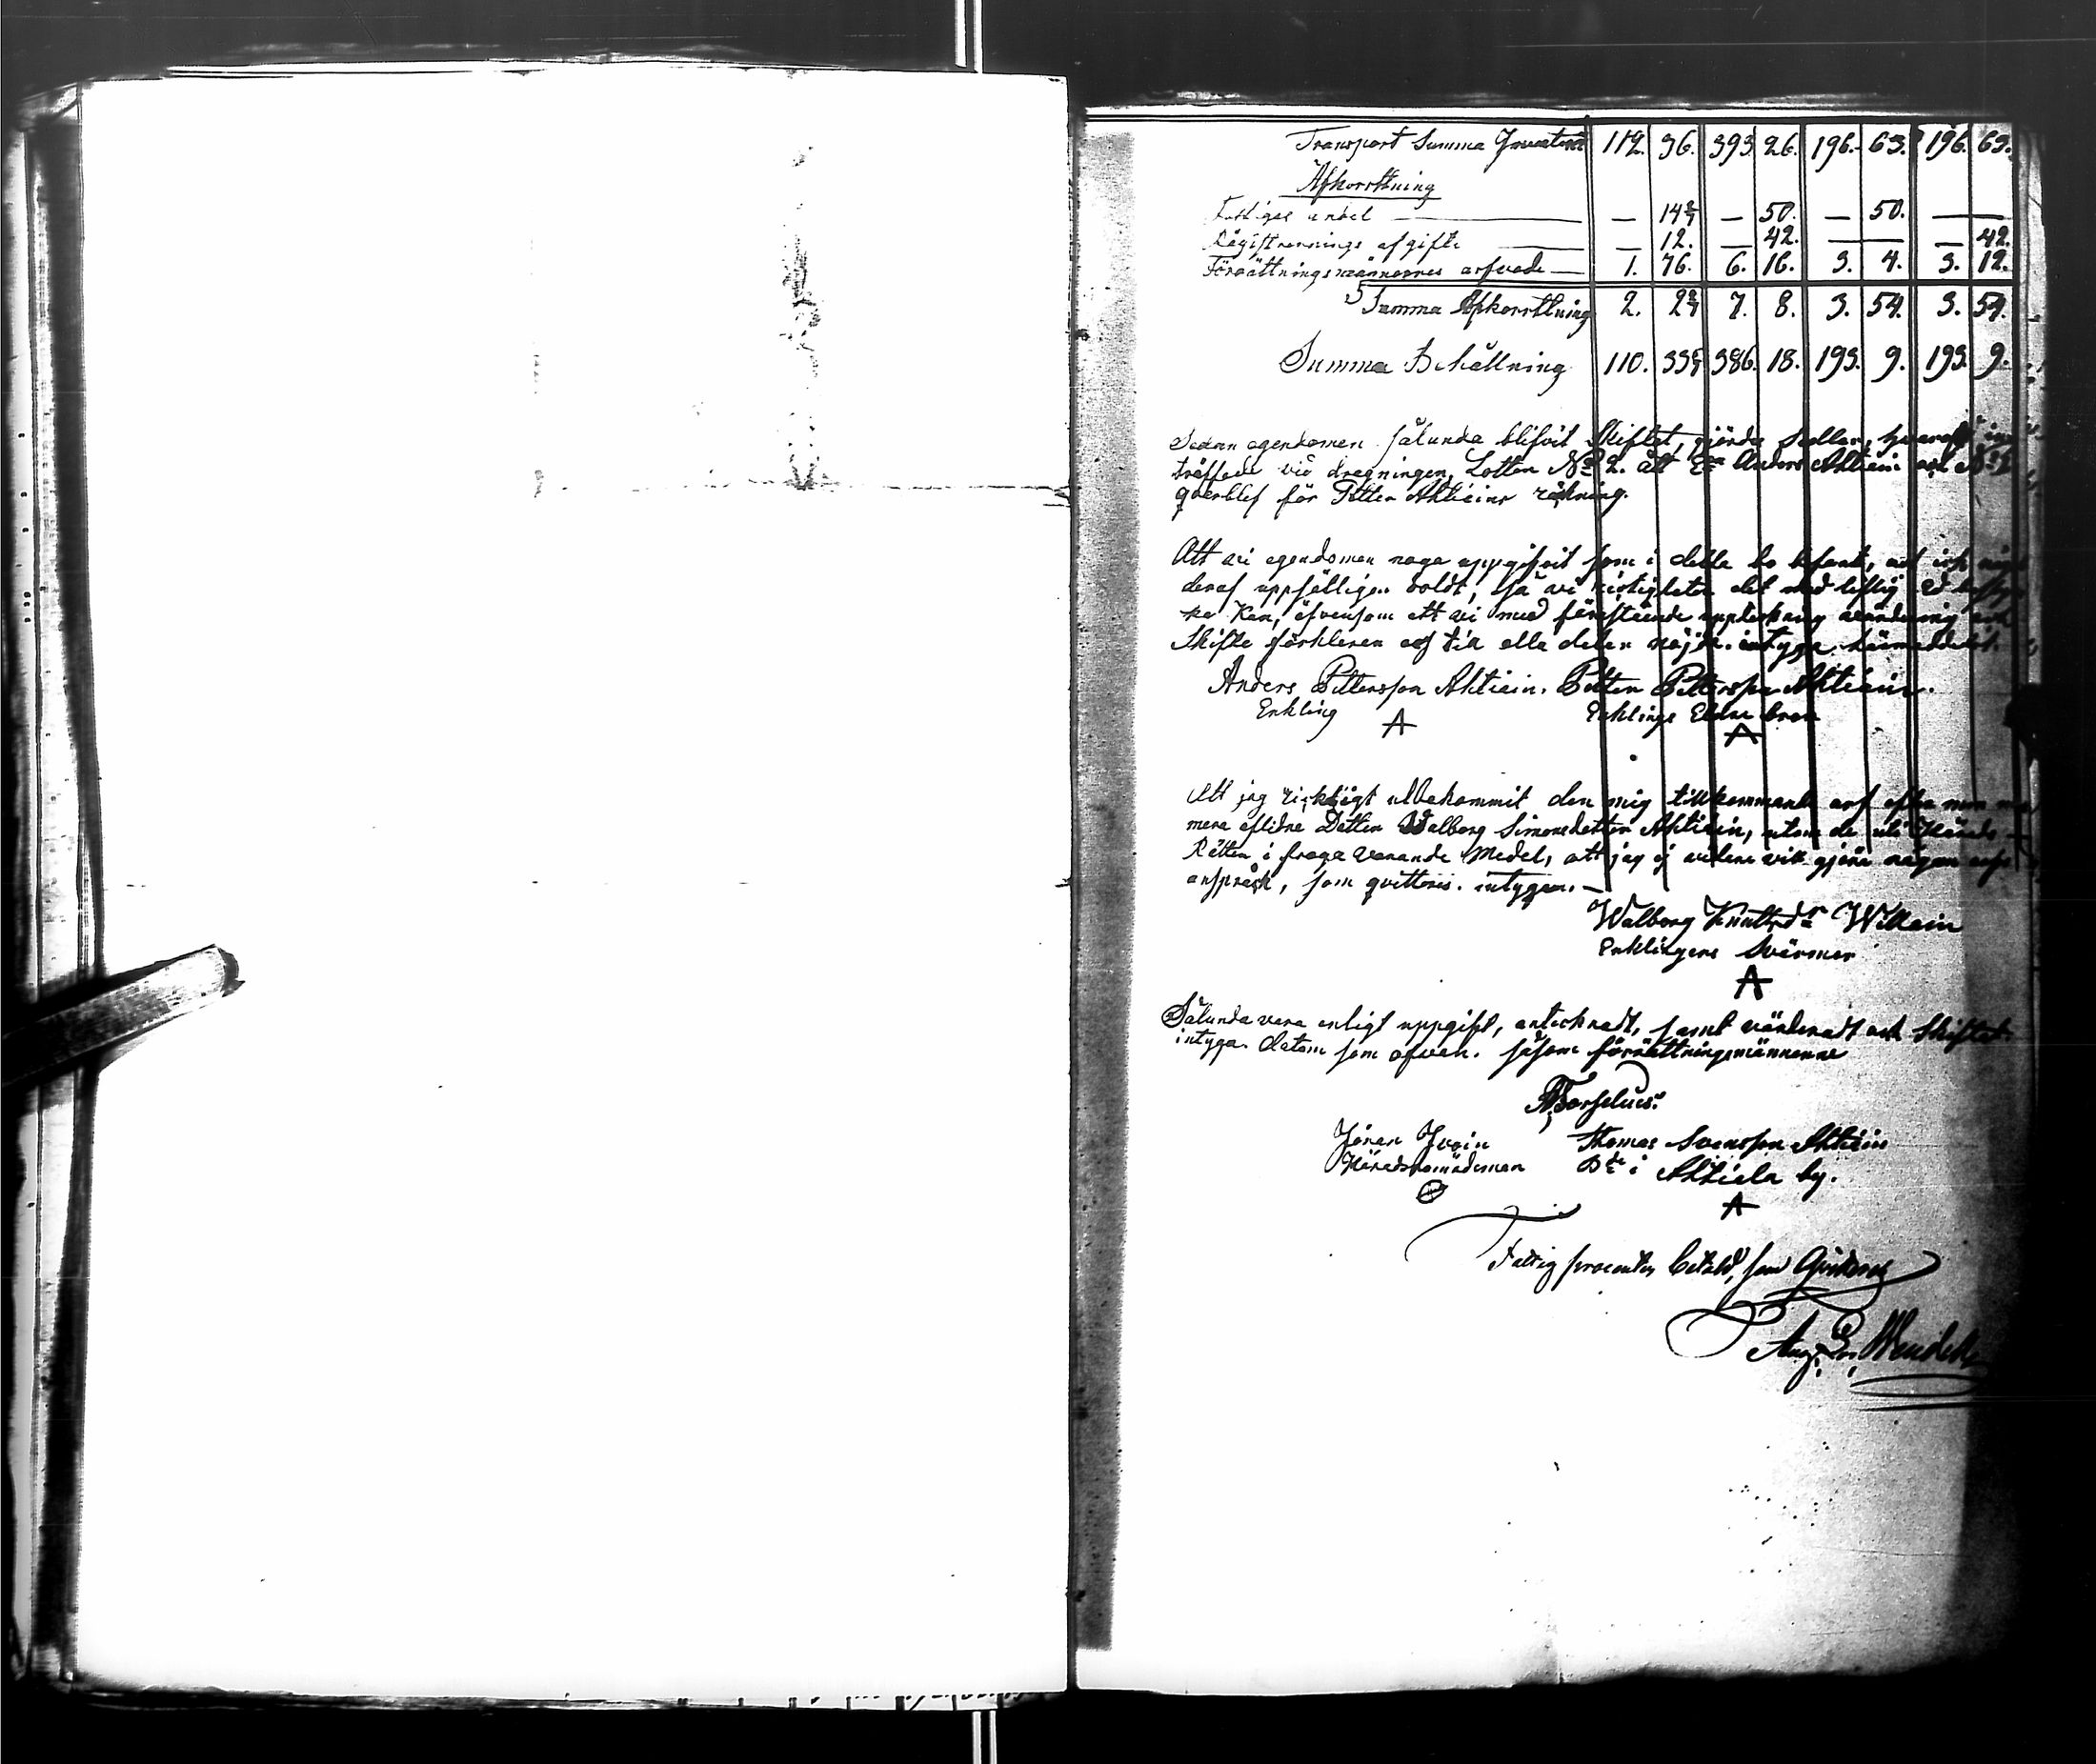 Transport Summa Inventarii 112. 36. 393. 26. 196. 63. 196. 63.
Afkorttning
Fattiges andel — 14 2/7 — 50. — 50. —
Registrerings afgifte — 12. — 42. — — 42.
Förrättningsmännernes arfvode — 1. 76. 6. 16. 3. 4. 3. 12.
Summa Afkorttning 2. 2 2/7 7. 8. 3. 54. 3. 54.
Summa Behållning 110. 33 5/7 386. 18. 193. 9. 193. 9.
Sedan egendomen sålunda blifvit Skiftet, gjordes Sedlar, hvaraf in
träffade vid dragningen, Lotten No 2. åt Anders Ahtiain och No 1
qvarblef för Petter Ahtiains räkning.
Att vi egendomen noga uppgifvit som i detta bo befants, och ick
deraf uppsåtligen doldt, så vi riktigheten det med liflig Ed
ka Kan, äfvensom att vi med föreståënde uppteckning värdering och
Skifte förklaren oss till alla delar nöjde. intyga härmedelst.
Anders Pettersson Ahtiain. Petter Pettersson Ahtiain.
Enkling Enklings Eldre broer
A A
Att jag ricktigt utbekommit den mig tillkommande arf efter min
mera aflidne Dotter Walborg Simonsdotter Ahtiain, utom de vid Härads
Rätten i fraga varande Medel, att jag ej vidare vill gjöra någon arfs
anspråk, som qvitteris. intygar. —
Walborg Knutsdr Wilkain
Enklingens Svärmor
A
Sålunda vara enligt uppgift, antecknadt, samt värderadt och Skiftadt
intyga. Datom som ofvan. såsom förrättningsmännerne
Jöran Ivoin Thomas Svensson Ahtiain
Häradsnämdeman Bde i Ahtiala by.
A
Fattig procenten betald, som Qvitteras
Aug. Wendell